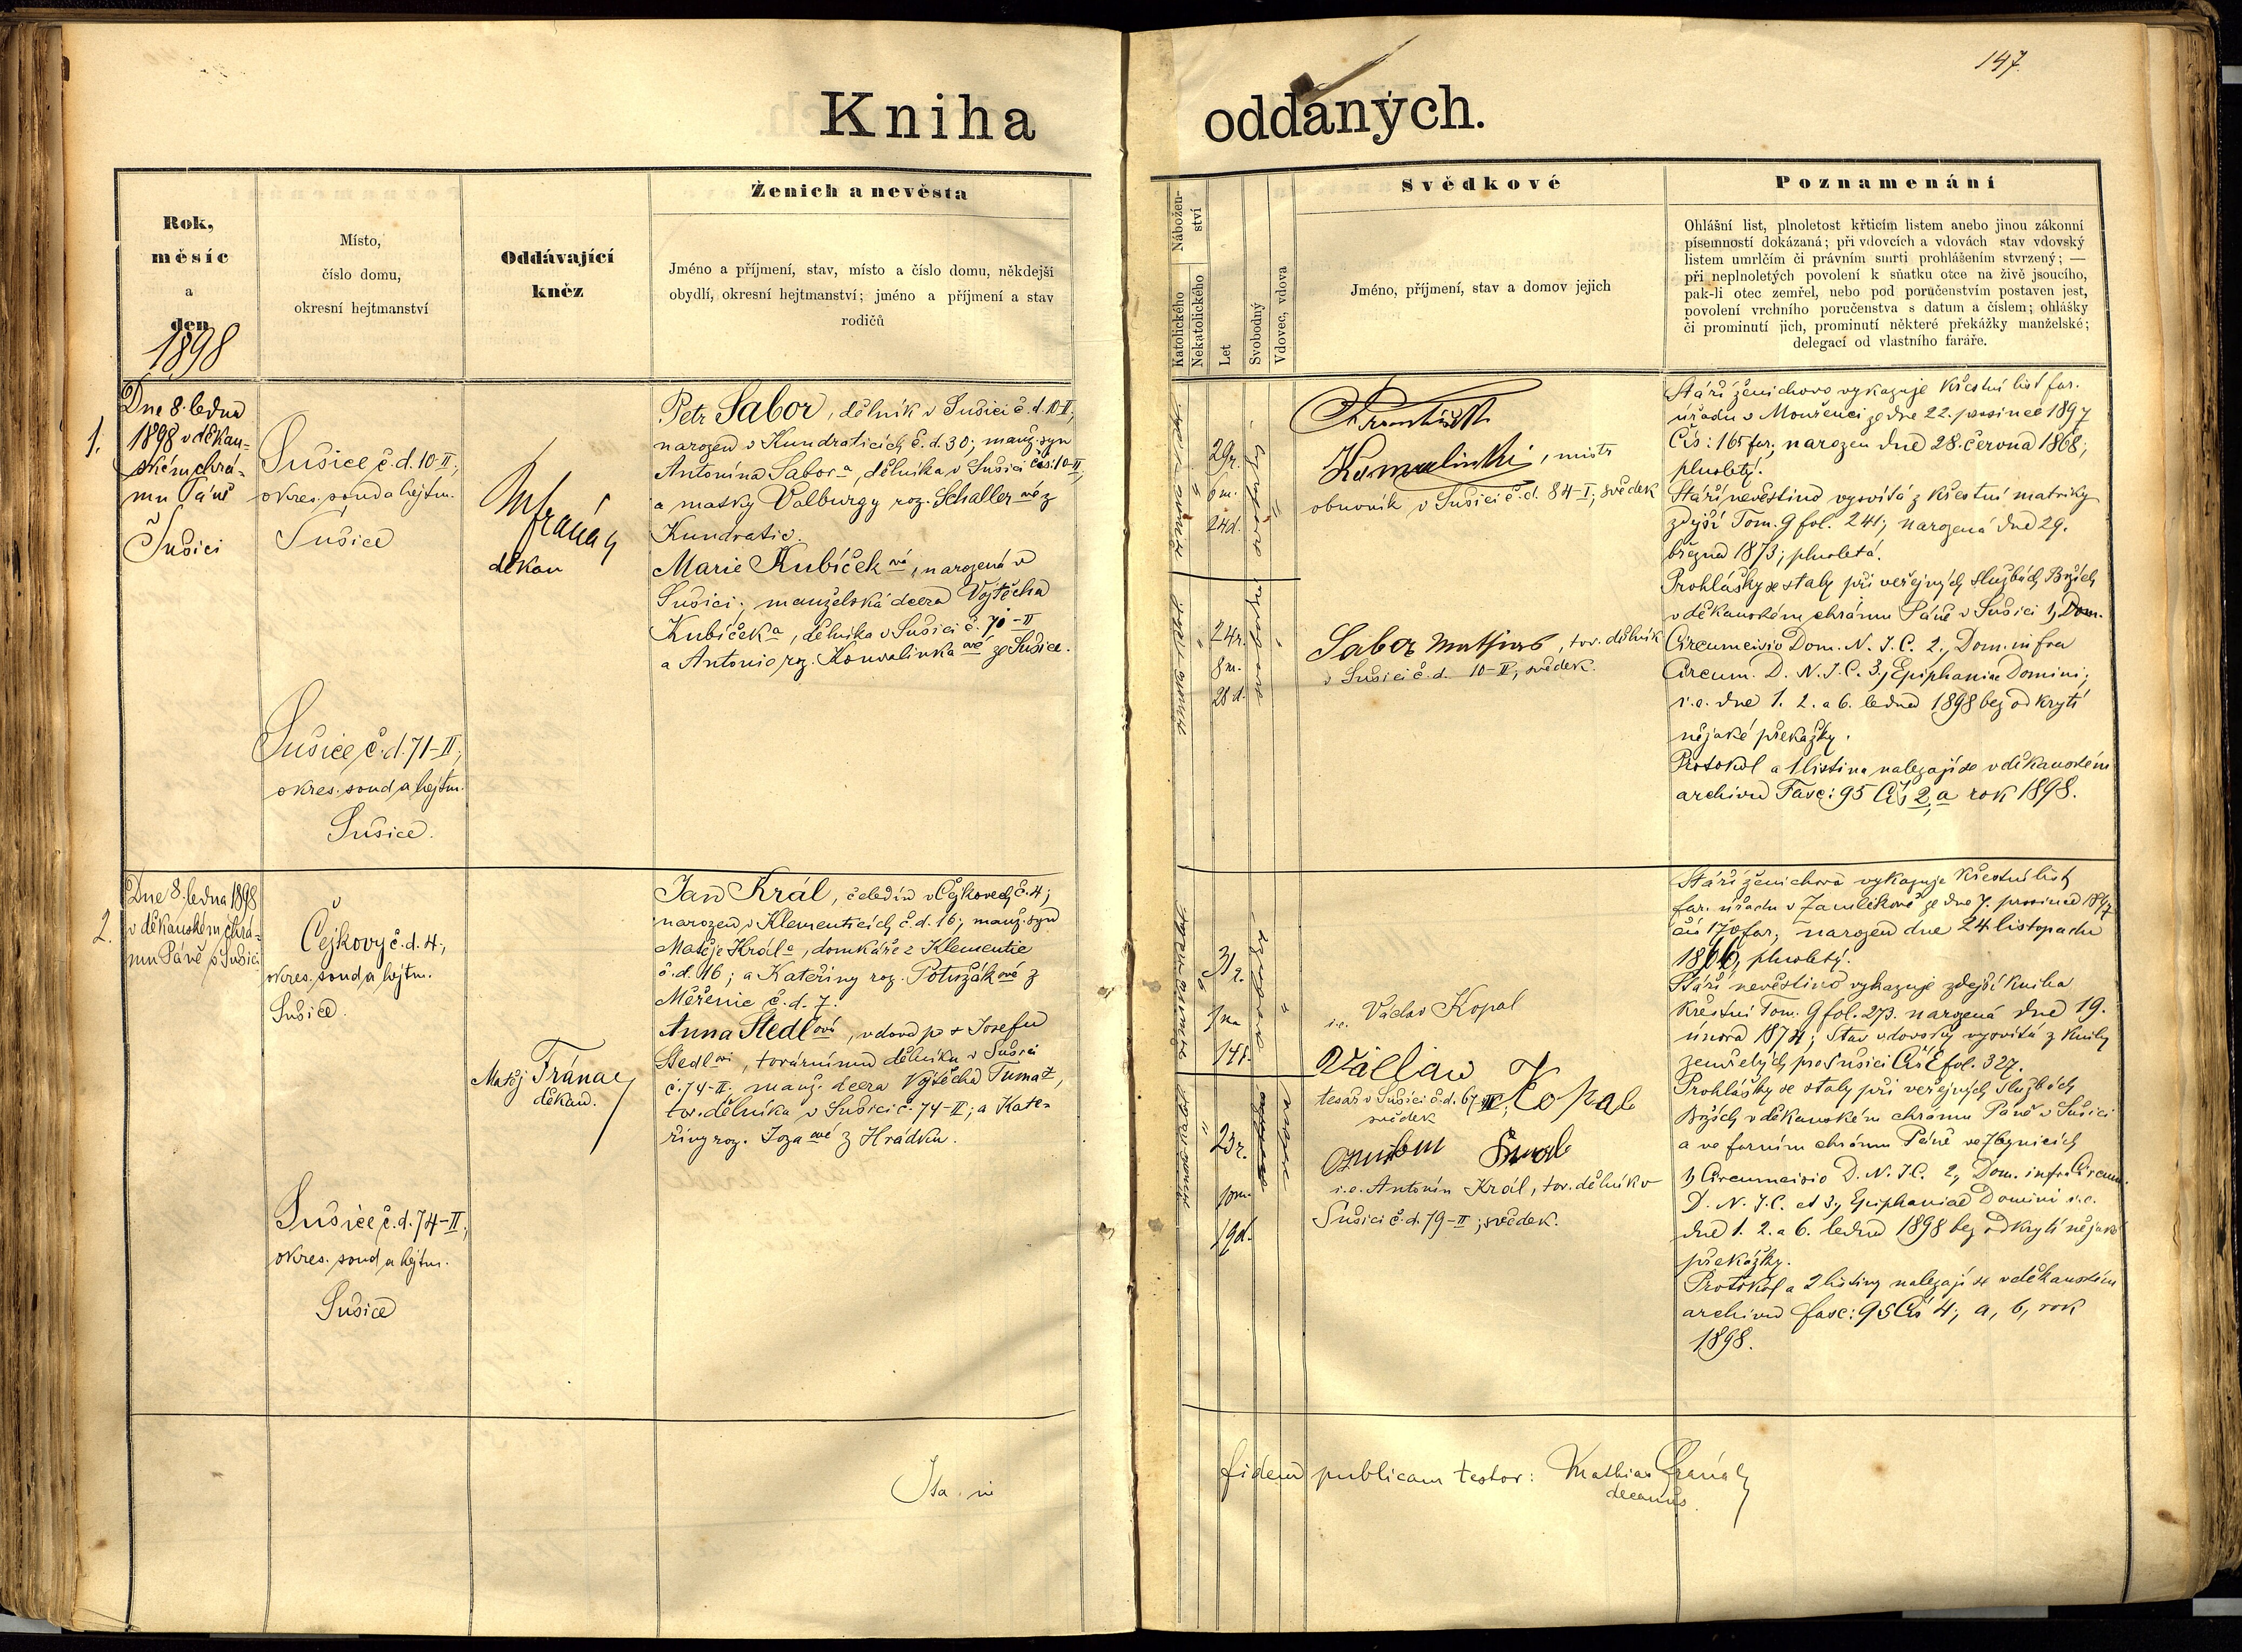 147.
Kniha oddaných.
Rok,
měsíc
a
den
1898
Místo,
číslo domu,
okresní hejtmanství
Oddávající
kněz
Ženich a nevěsta
Jméno a příjmení, stav, místo a číslo domu, někdejší
obydlí, okresní hejtmanství; jméno a příjmení a stav
rodičů
Nábožen-
ství
Katolického
Nekatolického
Let
Svobodný
Vdovec, vdova
Svědkové
Jméno, příjmení, stav a domov jejich
Poznamenání
Ohlášní list, plnoletost křticím listem anebo jinou zákonní
písemností dokázaná; při vdovcích a vdovách stav vdovský
listem umrlčím či právním smrti prohlášením stvrzený; —
při neplnoletých povolení k sňatku otce na živě jsoucího,
pak-li otec zemřel, nebo pod poručenstvím postaven jest,
povolení vrchního poručenstva s datum a číslem; ohlášky
či prominutí jich, prominutí některé překážky manželské;
delegací od vlastního faráře.
1.
Dne 8. ledna
1898 v děkan-
ském chrá-
mu Páně
v Sušici
Sušice č.d. 10-II;
okres. soud a hejtm.
Sušice
Sušice č.d. 71-II;
okres. soud a hejtm.
Sušice.
děkan
Petr Sabor, dělník v Sušici č.d. 10-II;
narozen v Kundraticích č.d. 30; manž. syn
Antonína Sabora, dělníka v Sušici čís: 10-II;
a matky Valburgy roz. Schallerové z
Kundratic.
Marie Kubíčková, narozená v
Sušici; manželská dcera Vojtěcha
Kubíčka, dělníka v Sušici č. 70-II
a Antonie roz. Konvalinkaové ze Sušice.
29r.
6m.
24d.
24r.
8m.
28d.
, mistr
obuvník v Sušici č.d. 84-I; svědek
Sabor Mathias, tov. dělník
v Sušici č.d. 10-II; svědek.
Stáří ženichovo vykazuje křestní list far.
úřadu v Mouřenci ze dne 22. prosince 1897
Čís: 165 far; narozen dne 28. června 1868;
plnoletý.
Stáří nevěstino vysvítá z křestní matriky
zdejší Tom. 9 fol. 241; narozená dne 29.
března 1873; plnoletá.
Prohlášky se staly při veřejných službách Božích
v děkanském chrámu Páně v Sušici 1, Dom.
Circumcisio Dom. N. J. C. 2, Dom. infra
Circum. D. N. J. C. 3, Epiphaniae Domini;
i.e. dne 1. 2. a 6. ledna 1898 bez odkrytí
nějaké překážky.
Protokol a 1 listina nalezají se v děkanském
archivu Fasc: 95 Čís 2, a rok 1898.
2.
Dne 8. ledna 1898
v děkanském chrá-
mu Páně v Sušici
Čejkovy č.d. 4;
okres. soud a hejtm.
Sušice.
Sušice č.d. 74-II;
okres. soud a hejtm.
Sušice
Matěj Fránay
děkan.
Jan Král, čeledín v Čejkovech č. 4;
narozen v Klementicích č.d. 16; manž. syn
Matěje Krále, domkáře z Klementic
č.d. 16; a Kateřiny roz. Potužákové z
č.d. 7.
Anna Stedlová, vdova po + Josefu
Stedlovi, továrnímu dělníku v Sušici
č. 74-II; manž. dcera Vojtěcha Tumat,
tov. dělníka v Sušici č. 74-II; a Kate-
řiny roz. Jozaové z Hrádku.
31r.
1m
14d.
23r.
10m.
19d.
i.e. Václav Kopal
Václlaw Kopal
tesař v Sušici č.d. 67-III;
svědek
i.e. Antonín Král, tov. dělník v
Sušici č.d. 79-II; svědek.
Stáří ženichovo vykazuje křestní list
far. úřadu v Zamlékově ze dne 7. prosince 1897
čís 170 far; narozen dne 24 listopadu
1866; plnoletý.
Stáří nevěstino vykazuje zdejší kniha
křestní Tom. 9 fol. 273. narozená dne 19.
února 1874; stav vdovský vysvítá z knihy
zemřelých pro Sušici Čís E fol. 327.
Prohlášky se staly při veřejných službách
Božích v děkanském chrámu Páně v Sušici
a ve farním chrámu Páně ve Zbynicích
1, Circumcisio D. N. J. C. 2, Dom. infra Circum.
D. N. J. C. et 3, Epiphaniae Domini i.e.
dne 1. 2. a 6. ledna 1898 bez odkrytí nějaké
překážky.
Protokol a 2 listiny nalezají se v děkanském
archivu fasc: 95 Čís 4; a, b, rok
1898.
fidem publicam testor: Mathias Fránay
decanus.